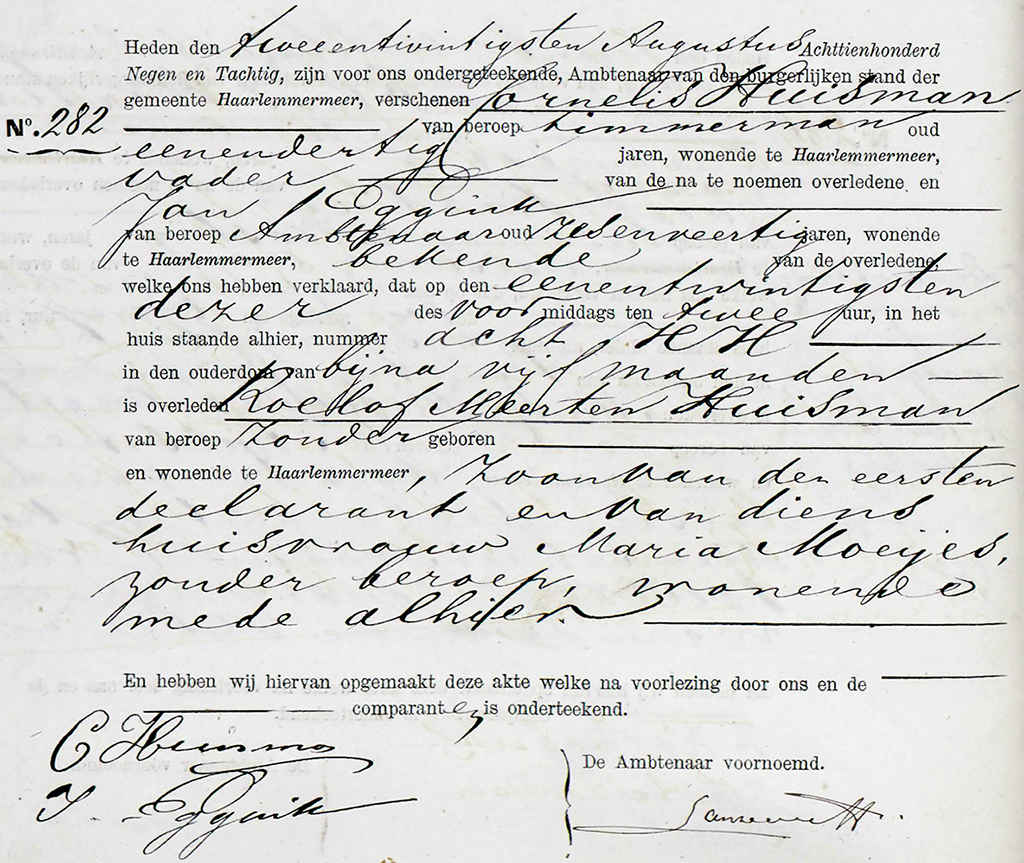 Heden den tweeentwintigsten Augustus Achttienhonderd
Negen en Tachtig, zijn voor ons ondergeteekende, Ambtenaar van den burgerlijken stand der
gemeente Haarlemmermeer, verschenen Cornelis Huisman
No. 282 van beroep timmerman oud
eenendertig jaren, wonende te Haarlemmermeer,
vader van de na te noemen overledene en
Jan Eggink
van beroep Ambtenaar oud zesenveertig jaren, wonende
te Haarlemmermeer, bekende van de overledene,
welke ons hebben verklaard, dat op den eenentwintigsten
dezer des voor middags ten twee uur, in het
huis staande alhier, nummer acht HH
in den ouderdom van bijna vijf maanden
is overleden Roelof Meerten Huisman
van beroep zonder geboren
en wonende te Haarlemmermeer, zoon van den eersten
declarant en van diens
huisvrouw Maria Moeijes,
zonder beroep, wonende
mede alhier.
En hebben wij hiervan opgemaakt deze akte welke na voorlezing door ons en de
comparanten is onderteekend.
C Huisman
J. Eggink
De Ambtenaar voornoemd.